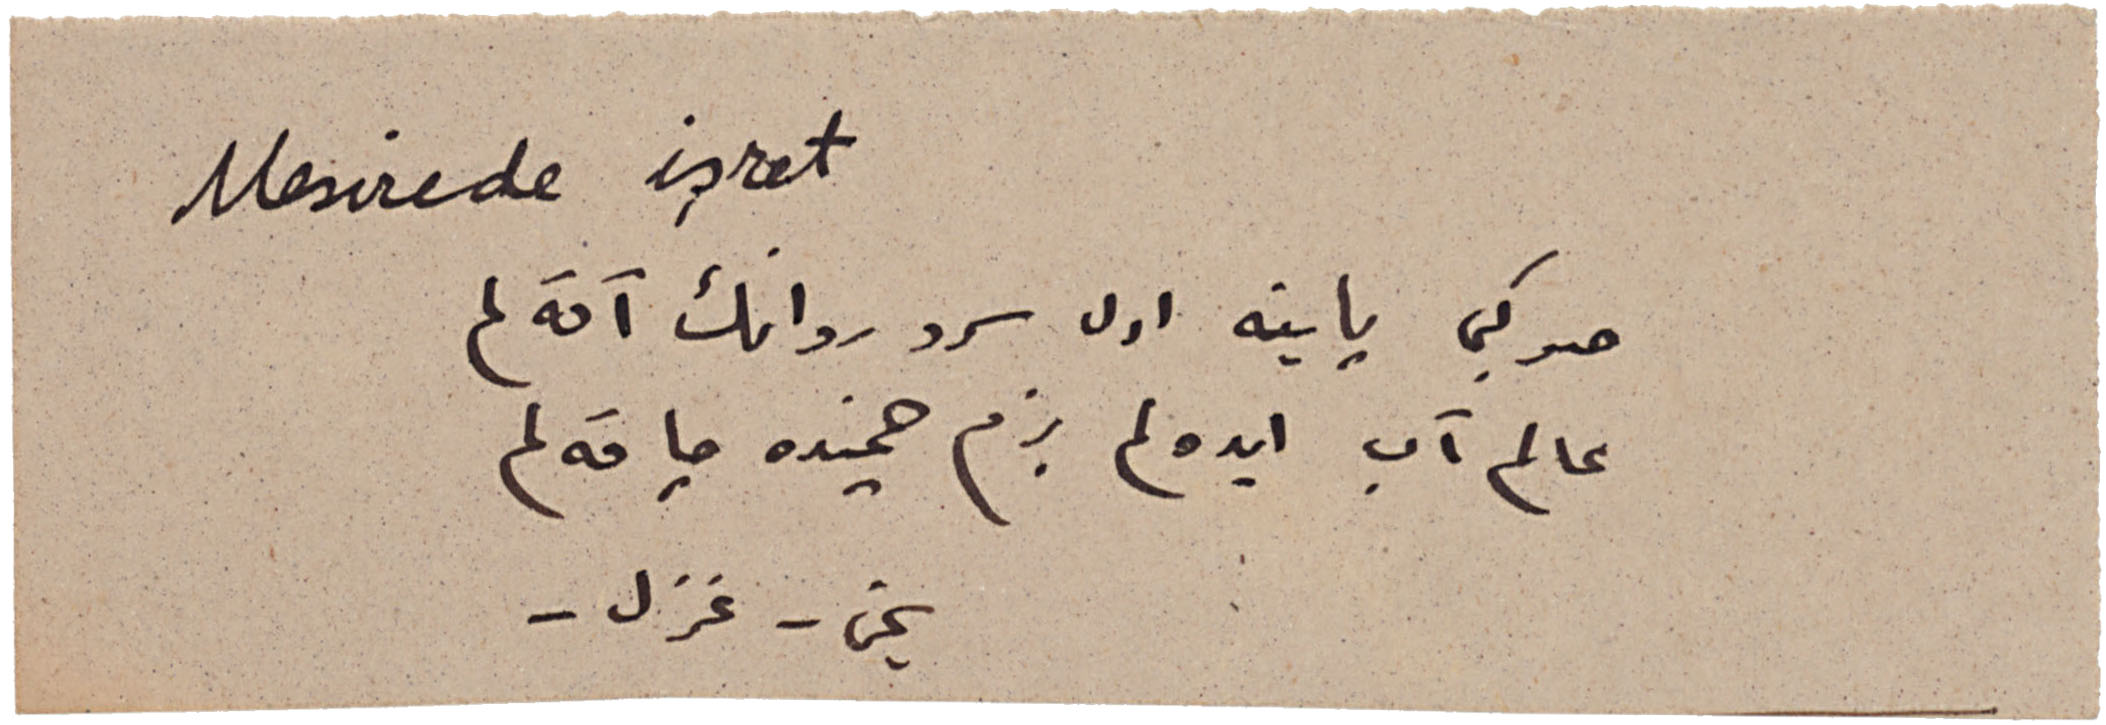 Mesirede işret
صو كبی پاینه اول سرو روانك آقه لم
عالم آب ایده لم بزم چمنده چاقه لم
یحیی - غزل -